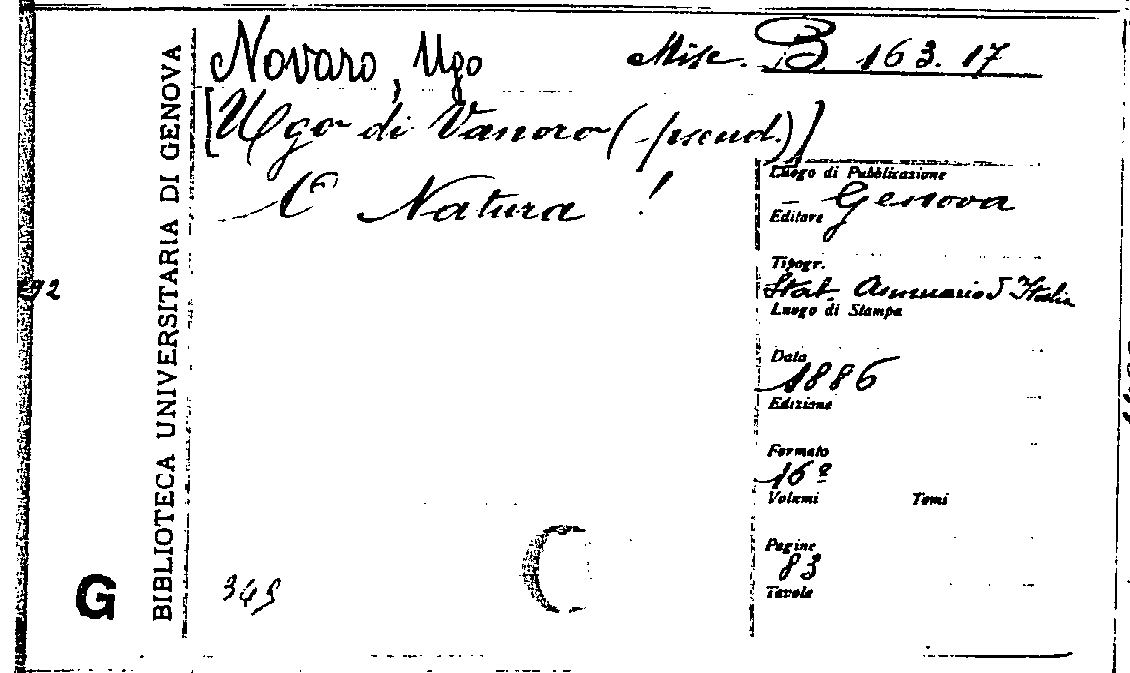 Novaro, Ugo Misc. B 163.17
[Ugo di Vanoro (pseud.)]
O Natura !
Luogo di Pubblicazione
Genova
Editore
Tipogr.
Stab. Annuario d'Italia
Luogo di Stampa
Data
1886
Edizione
Formato
16º
Volumi Tomi
Pagine
83
Tavole
349
BIBLIOTECA UNIVERSITARIA DI GENOVA
G